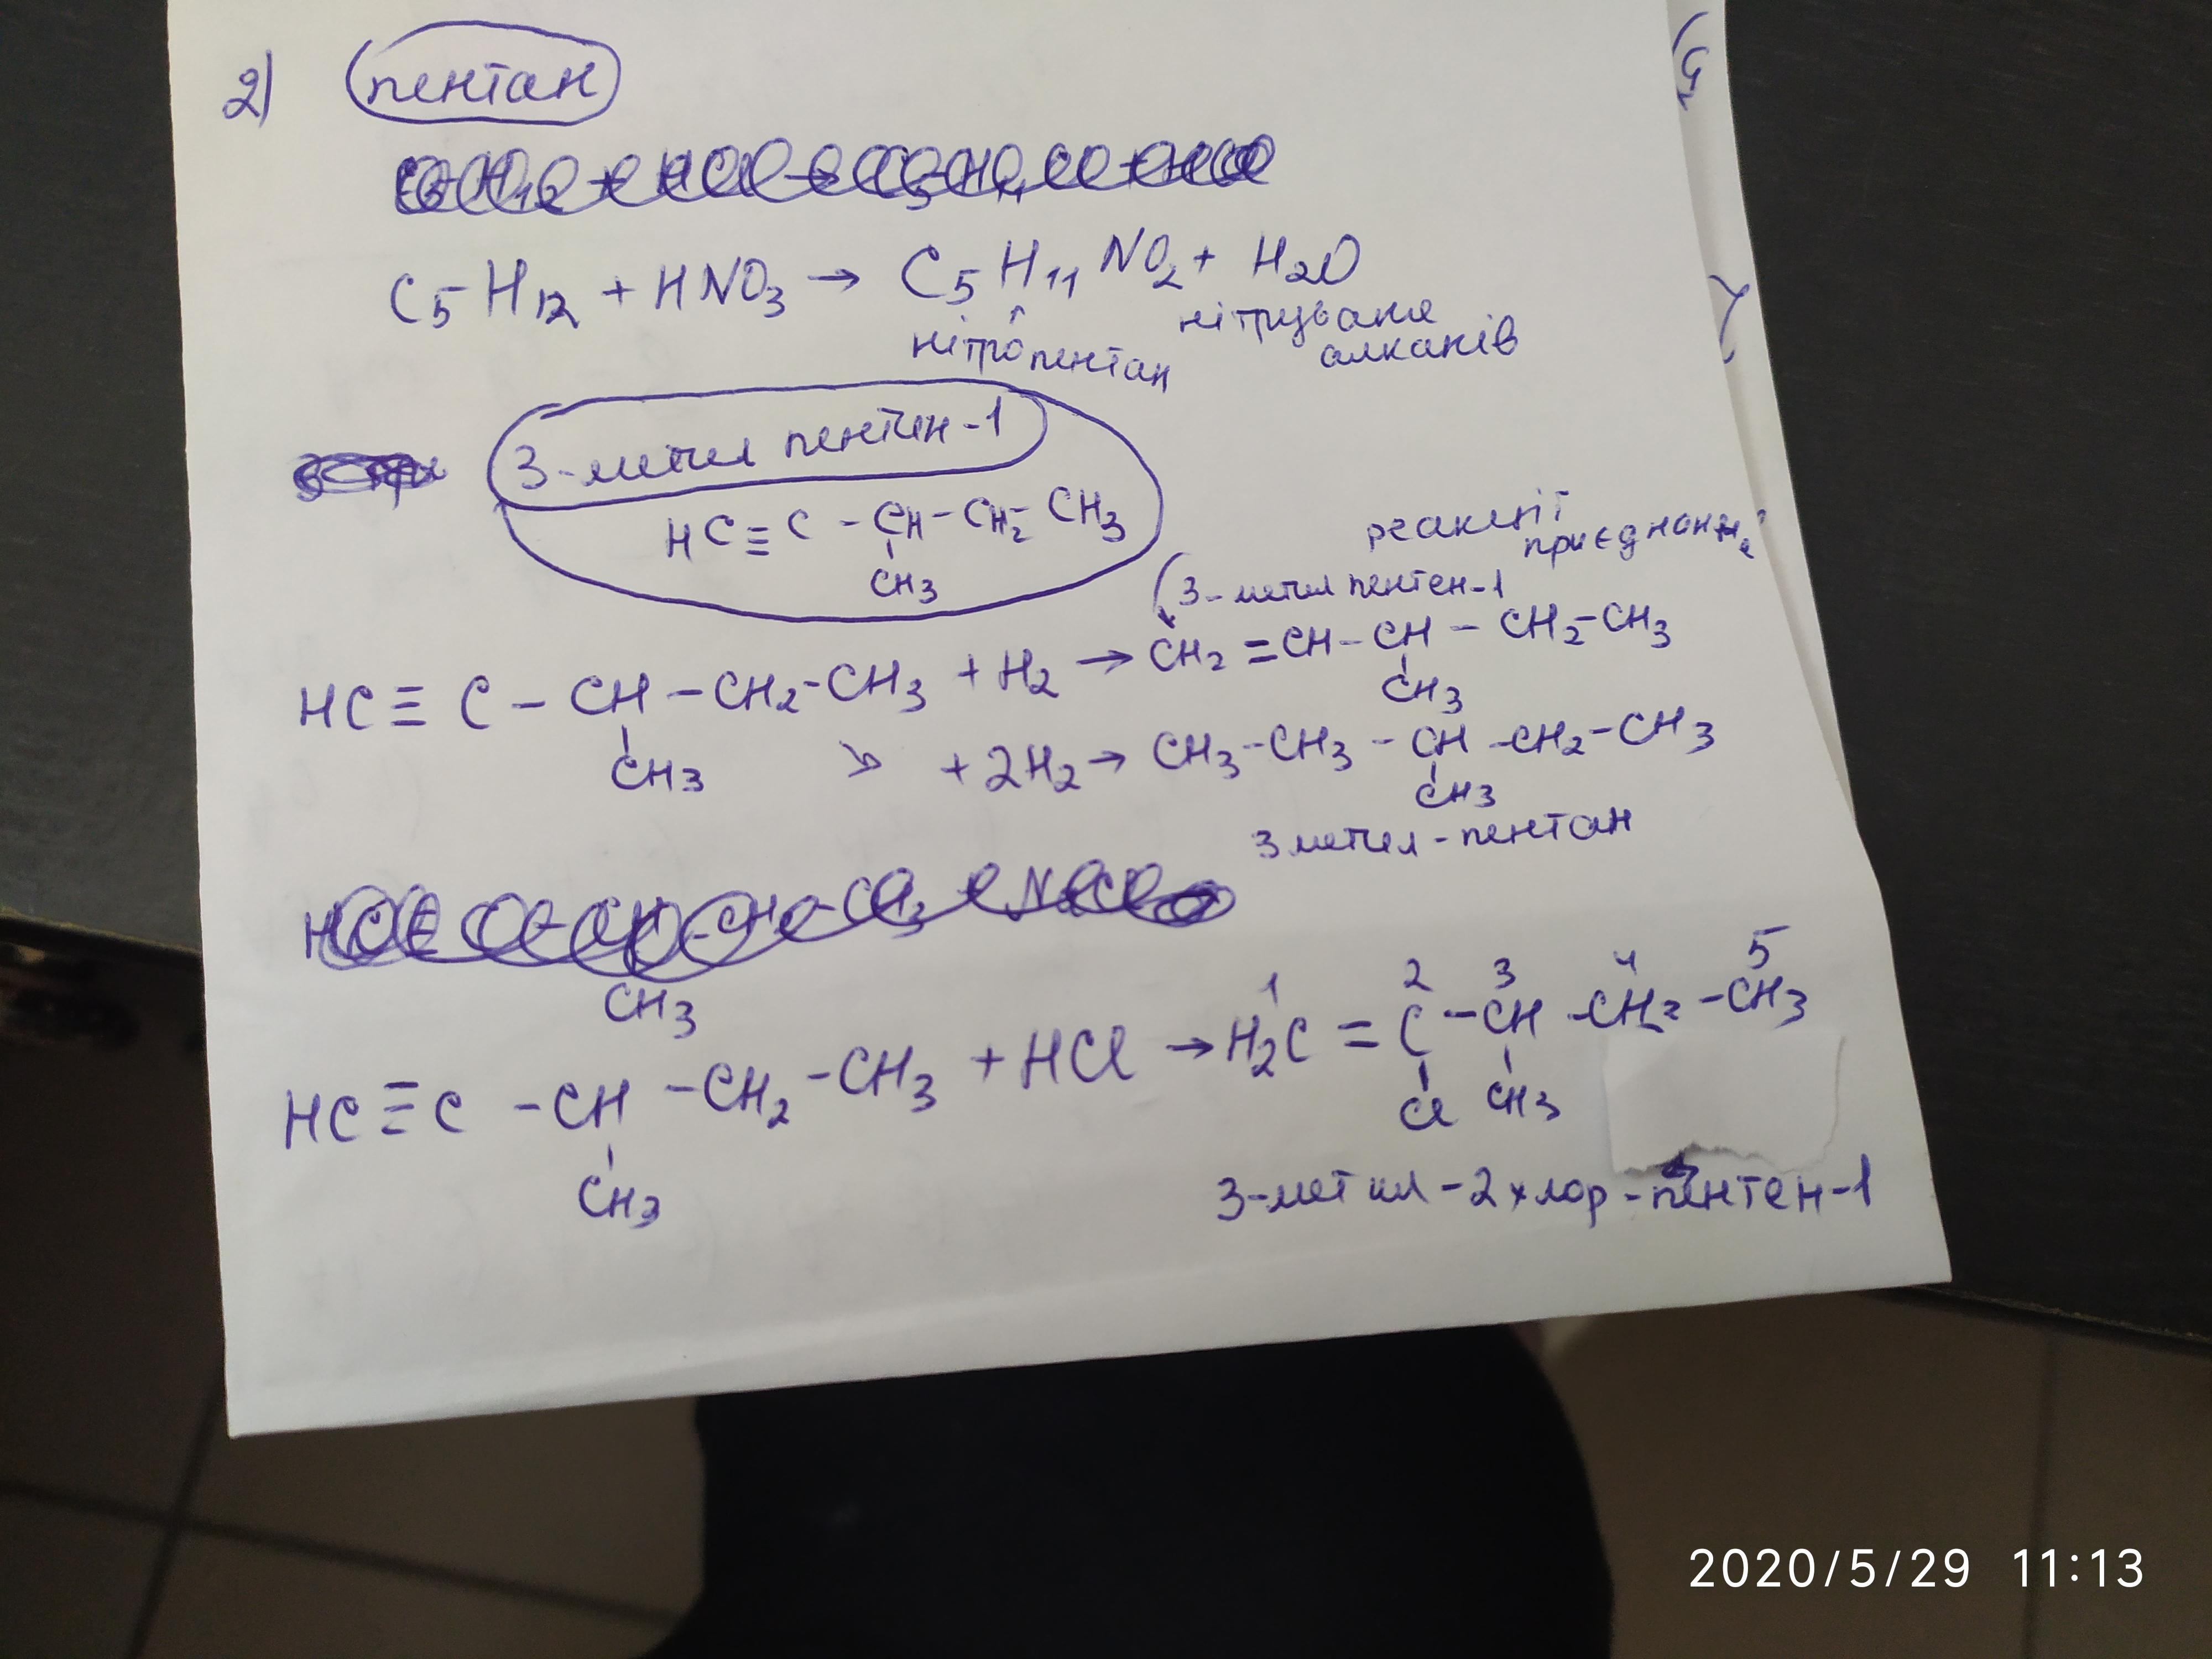 2) пентан
C5H12 + HNO3 → C5H11NO2 + H2O
нітропентан
нітрування
алканів
3-метил пентин-1
HC≡C-CH-CH2-CH3
CH3
реакції
приєднання
3-метил пентен-1
HC≡C-CH-CH2-CH3 + H2 → CH2=CH-CH-CH2-CH3
CH3
CH3
+2H2 → CH3-CH3-CH-CH2-CH3
CH3
3 метил-пентан
CH3
1 2 3 4 5
HC≡C-CH-CH2-CH3 + HCl → H2C=C-CH-CH2-CH3
Cl CH3
CH3
3-метил-2 хлор-пентен-1
2020/5/29 11:13